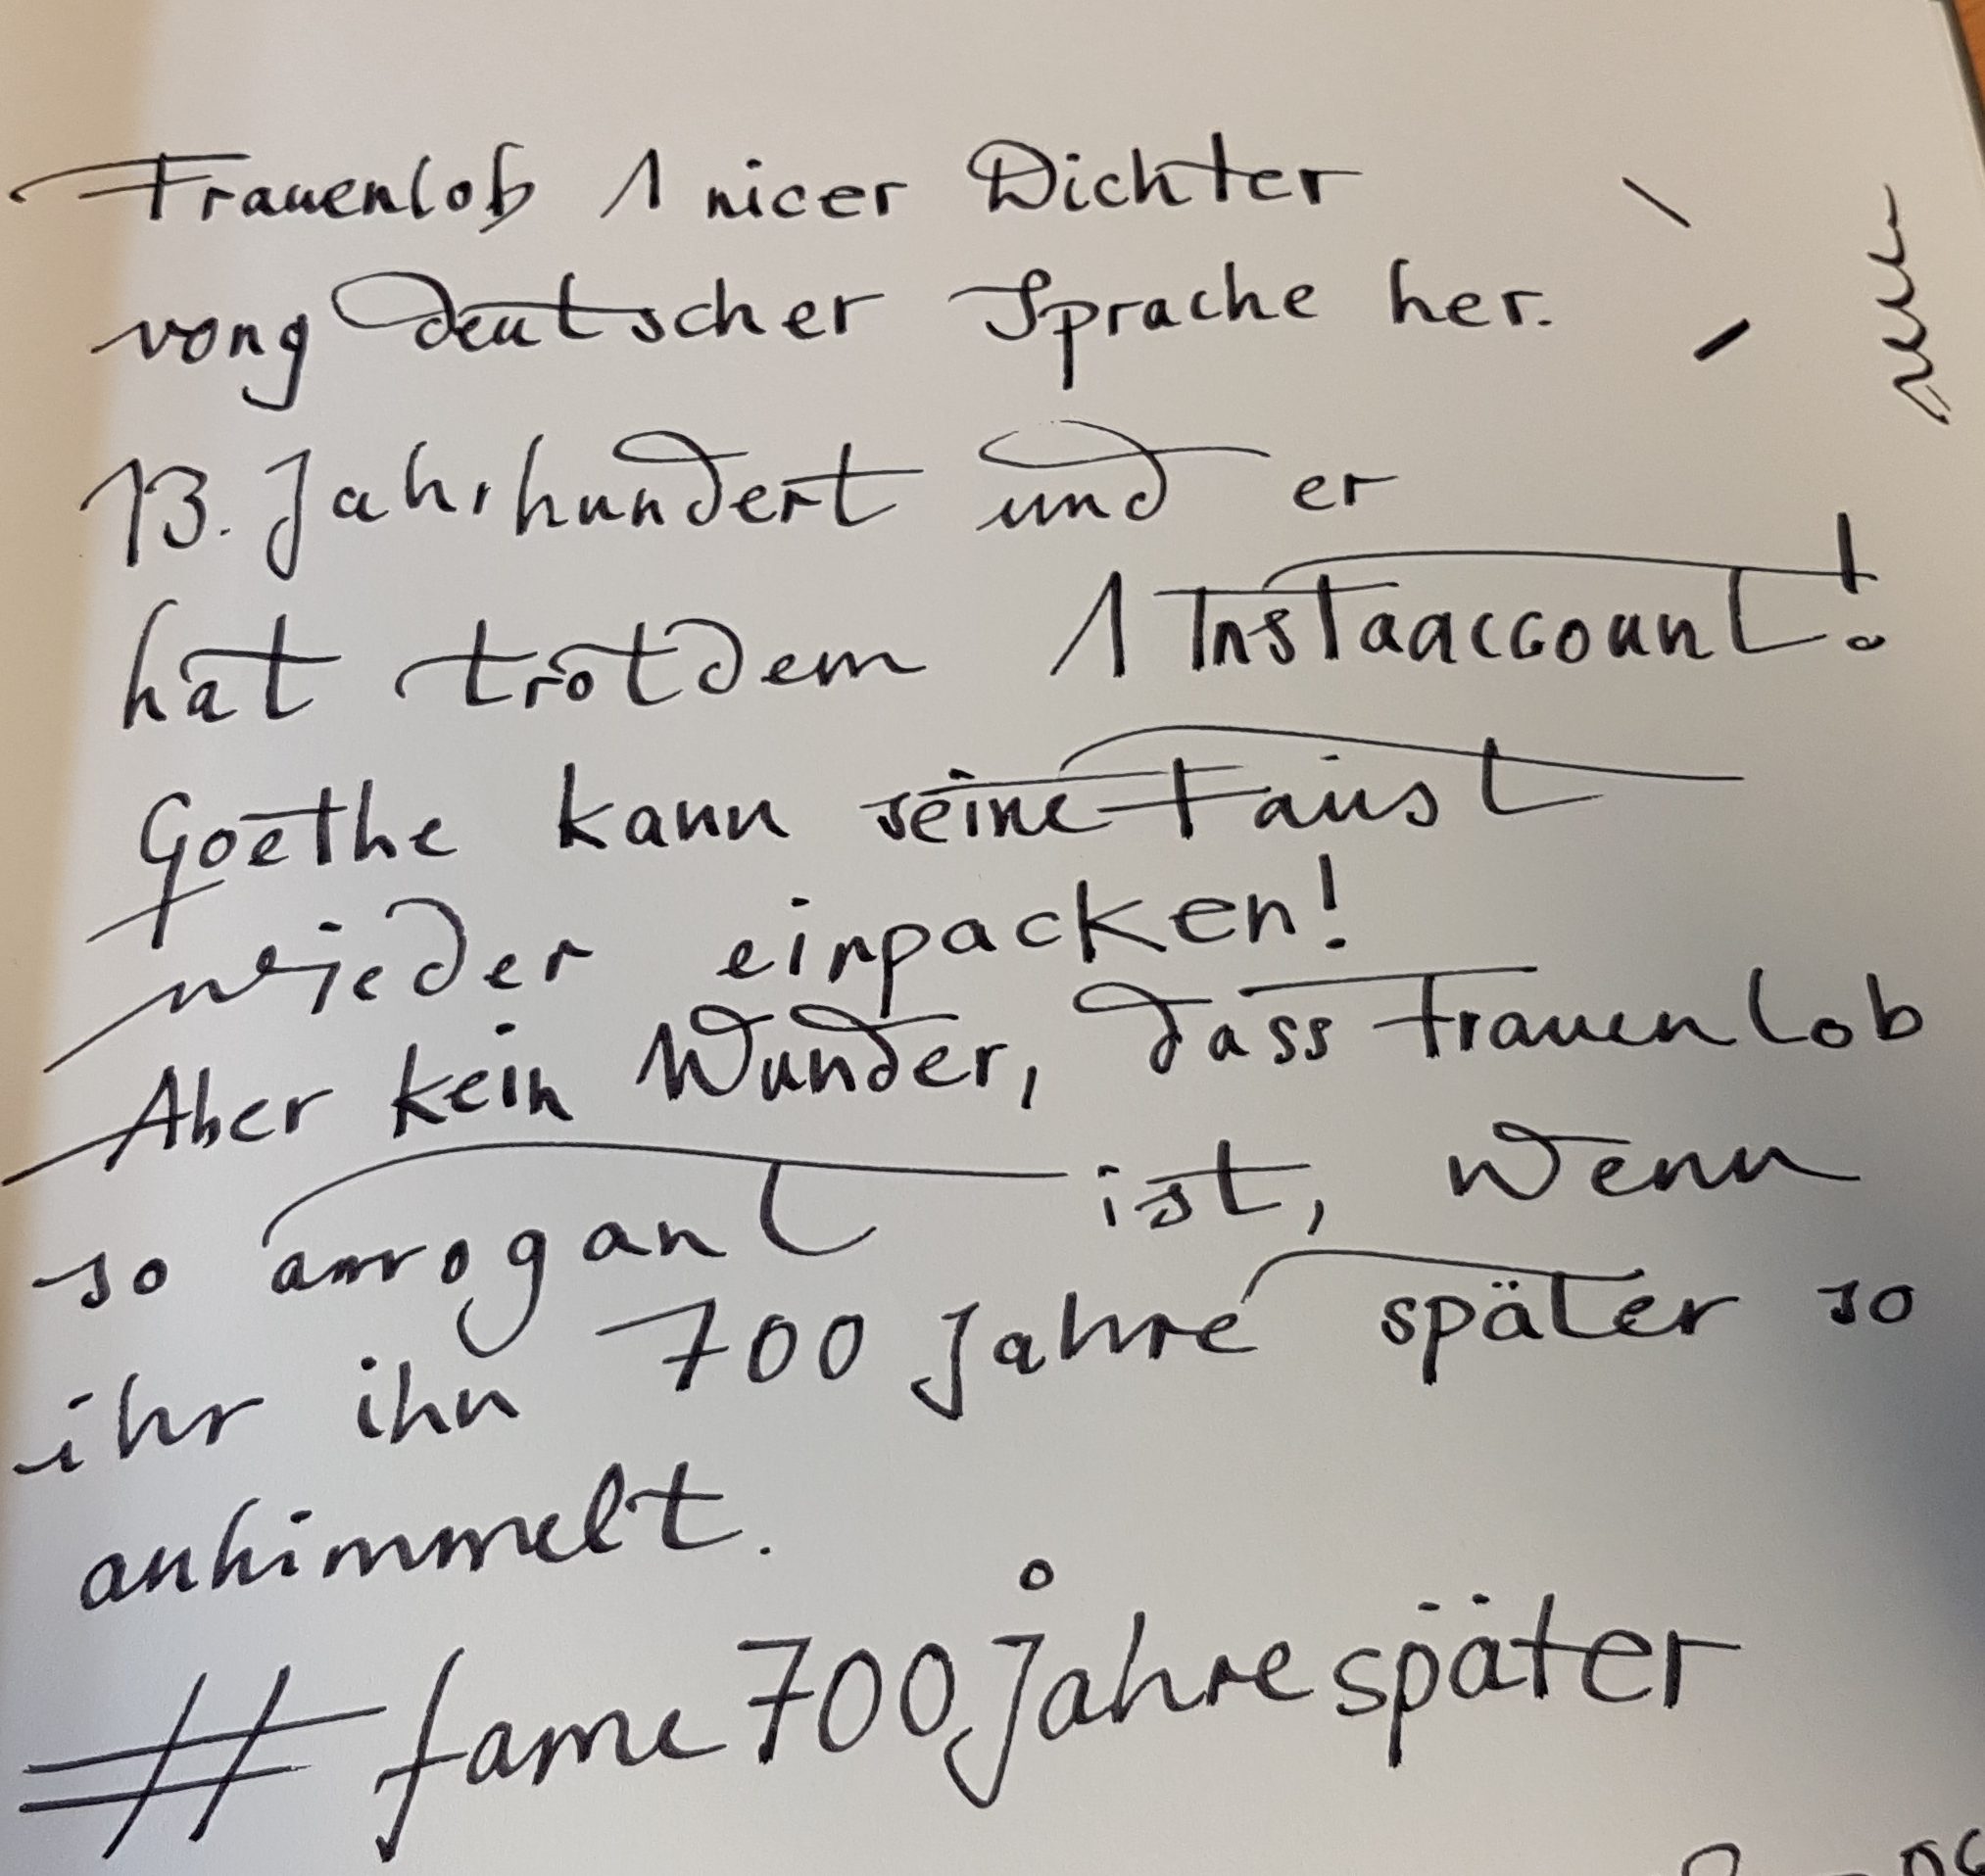 Frauenlob 1 nicer Dichter
vong deutscher Sprache her.
13. Jahrhundert und er
hat trotdem 1 Instaaccount!
Goethe kann seine Faust
wieder einpacken!
Aber kein Wunder, dass Frauenlob
so arrogant ist, wenn
ihr ihn 700 Jahre später so
anhimmelt.
#fame700jahrespäter